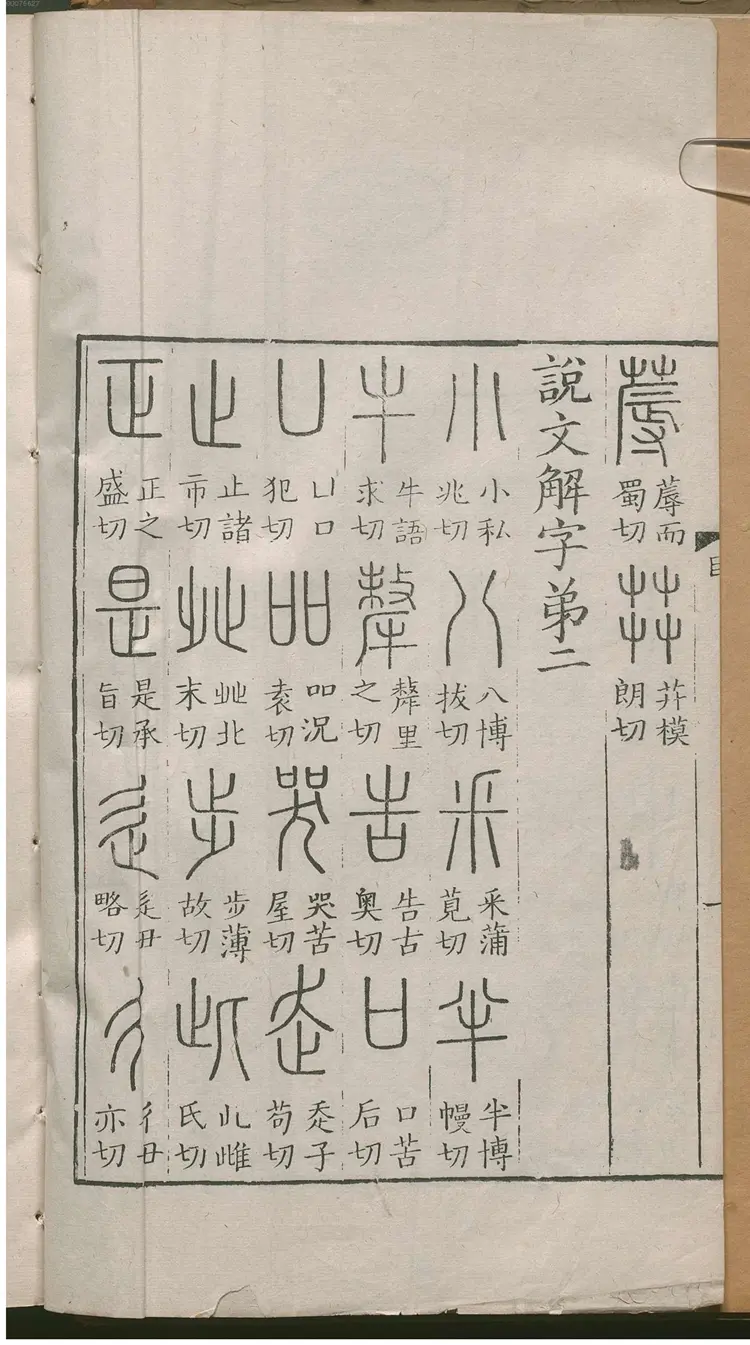 目 一
蓐 蓐而蜀切 茻 茻模朗切
說文解字弟二
小 小私兆切 八 八博拔切 釆 釆蒲莧切 半 半博幔切
牛 牛語求切 犛 犛里之切 告 告古奧切 口 口苦后切
凵 凵口犯切 吅 吅況袁切 哭 哭苦屋切 走 走子苟切
止 止諸市切 癶 癶北末切 步 步薄故切 此 此雌氏切
正 正之盛切 是 是承旨切 辵 辵丑略切 彳 彳丑亦切